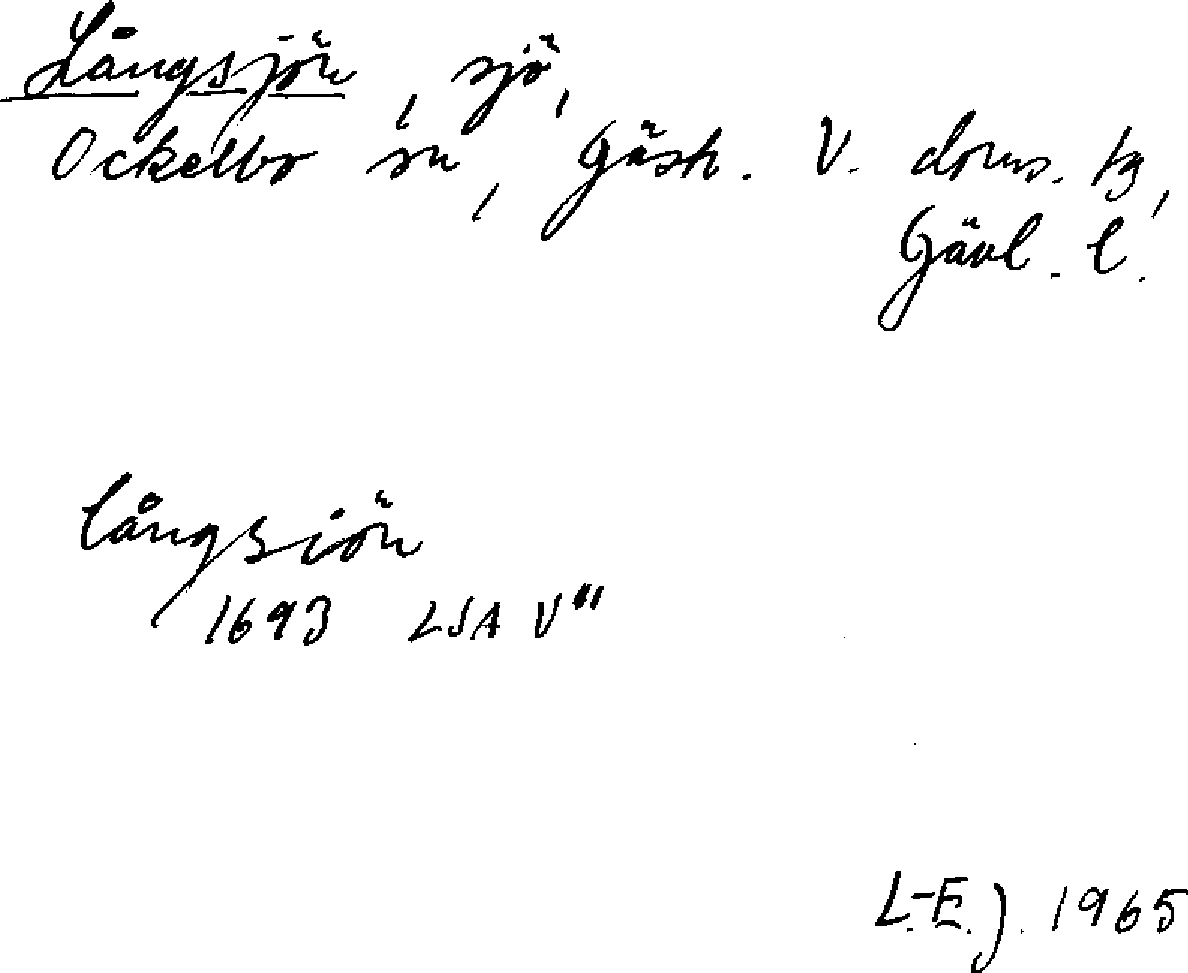 Långsjön, sjö,
Ockelbo sn, Gästr. V. doms. tg,
Gävl. l.
Långsiön
1693 LSA V"'
L.-E. J. 1965